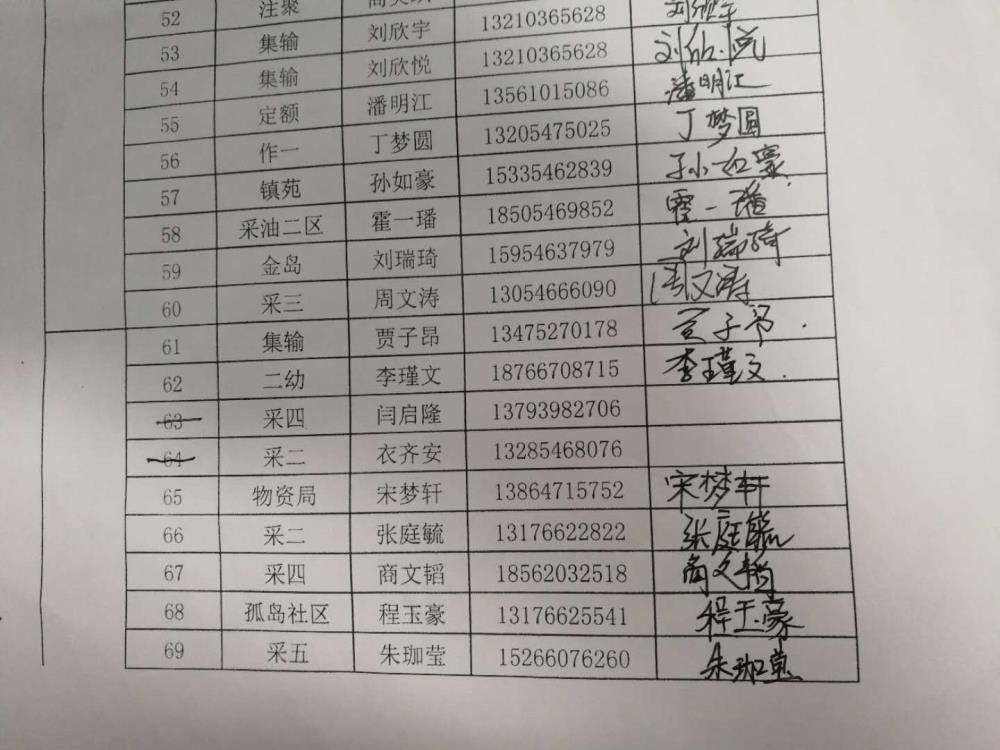 52 注聚
53 集输 刘欣宇 13210365628 刘欣宇
54 集输 刘欣悦 13210365628 刘欣悦
55 定额 潘明江 13561015086 潘明江
56 作一 丁梦圆 13205475025 丁梦圆
57 镇苑 孙如豪 15335462839 孙如豪
58 采油二区 霍一璠 18505469852 霍一璠
59 金岛 刘瑞琦 15954637979 刘瑞琦
60 采三 周文涛 13054666090 周文涛
61 集输 贾子昂 13475270178 贾子昂
62 二幼 李瑾文 18766708715 李瑾文
63 采四 闫启隆 13793982706
64 采二 衣齐安 13285468076
65 物资局 宋梦轩 13864715752 宋梦轩
66 采二 张庭毓 13176622822 张庭毓
67 采四 商文韬 18562032518 商文韬
68 孤岛社区 程玉豪 13176625541 程玉豪
69 采五 朱珈莹 15266076260 朱珈莹